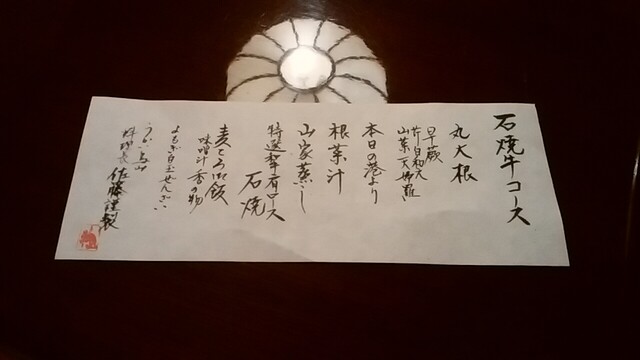 石焼牛コース
丸大根
早蕨
山菜天婦羅
本日の巻より
根菜汁
山家蒸し
特選 ロース
石焼
麦とろ御飯
味噌汁 香の物
よもぎ白玉ぜんざい
うかい鳥山
料理長 佐藤謹製